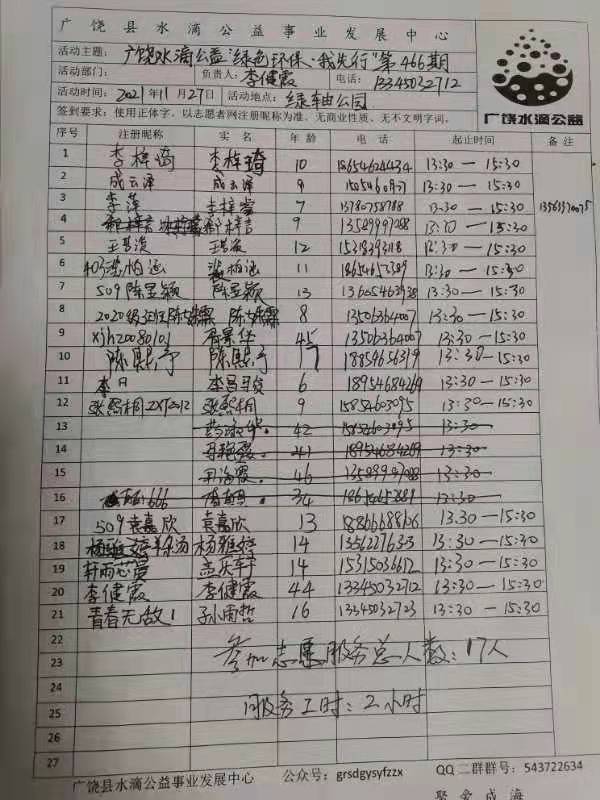 广饶县水滴公益事业发展中心
活动主题：广饶水滴公益"绿色环保·我先行"第466期
活动部门： 负责人：李健霞 电话：13345032712
活动时间：2021年11月27日 活动地点：绿轴公园
签到要求：使用正体字，以志愿者网注册昵称为准、无商业性质、无不文明字词。
广饶水滴公益
序号 注册昵称 实名 年龄 电话 起止时间 备注
1 李梓琦 李梓琦 10 18654624434 13:30 — 15:30
2 成云泽 成云泽 9 13:30 — 15:30
3 李萍 李梓萱 7 13780758788 13:30 — 15:30
4 郝梓言 9 13589997288 13:30 — 15:30
5 12 13:30 — 15:30
6 张柏涵 11 13:30 — 15:30
7 509陈昱颖 陈昱颖 13 13605463938 13:30 — 15:30
8 8 13506364007 13:30 — 15:30
9 xjh20080101 45 13506364007 13:30 — 15:30
10 陈熙予 陈熙予 17 18854656319 13:30 — 15:30
11 李日 6 18954684269 13:30 — 15:30
12 张熙桐ZXT2012 张熙桐 9 15854603095 13:30 — 15:30
13 42 15854603095 13:30
14 41 18954684269 13:30
15 46 13589997288 13:30
16 666 34 13:30
17 509袁嘉欣 袁嘉欣 13 18866688626 13:30 — 15:30
18 杨雅婷 14 13:30 — 15:30
19 轩雨芯蕾 孟庆轩 14 15315036612 13:30 — 15:30
20 李健霞 李健霞 44 13345032712 13:30 — 15:30
21 青春无敌1 孙雨哲 16 13345032723 13:30 — 15:30
22 参加志愿服务总人数：17人
23
24
25 服务工时：2小时
26
27
广饶县水滴公益事业发展中心 公众号：grsdgysyfzzx QQ二群群号：543722634
聚爱成海